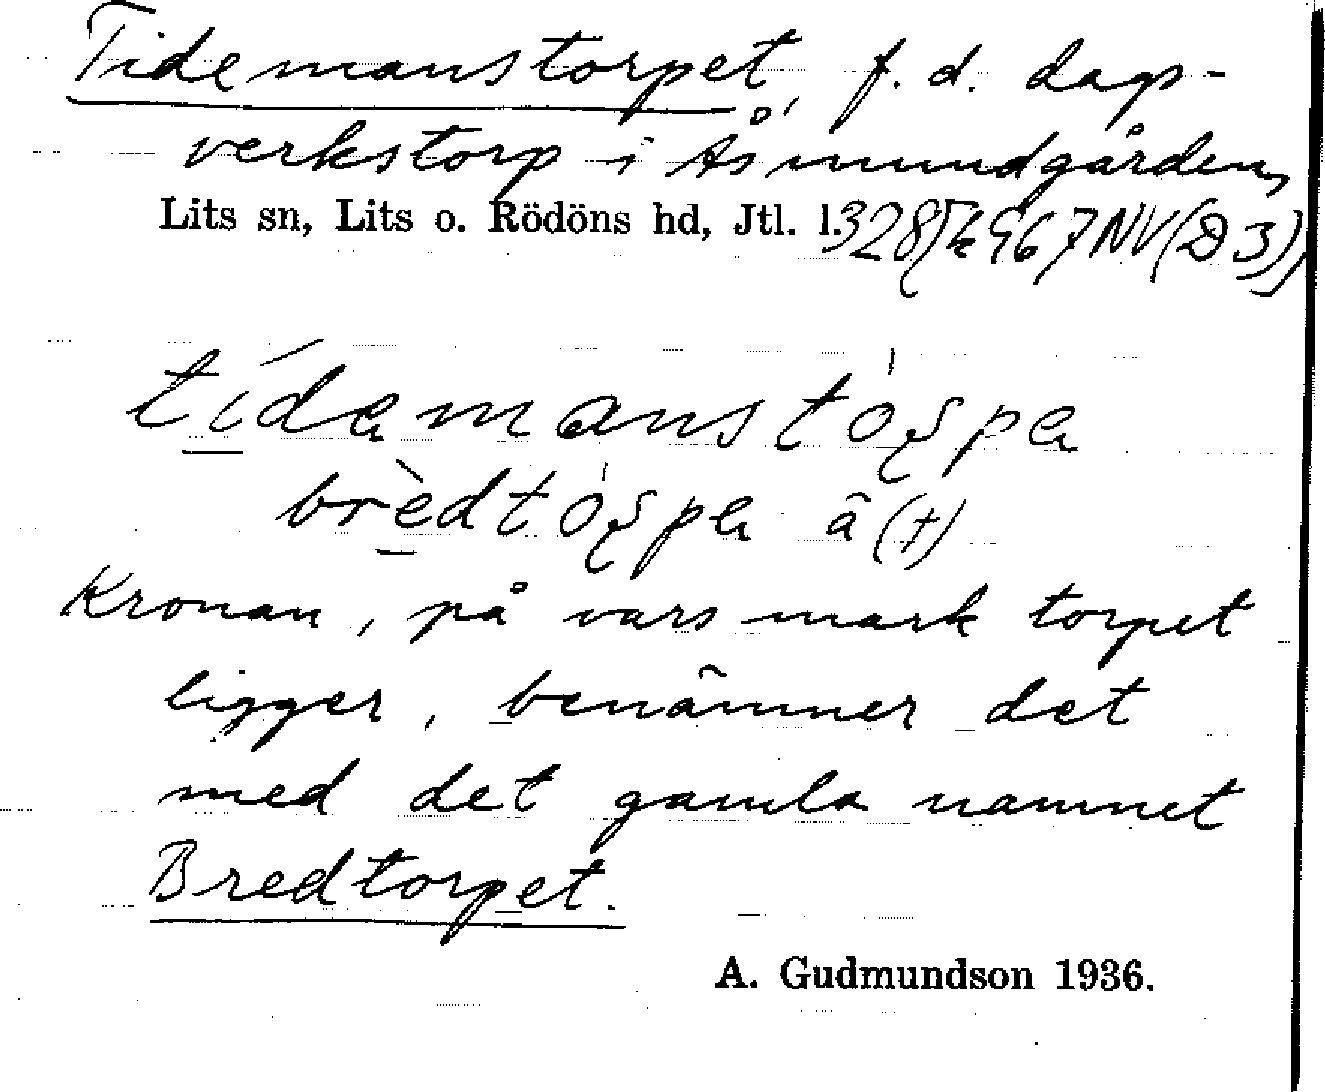 Tidemanstorpet, f. d. dags-
verkstorp i Åsmundgården,
Lits sn, Lits o. Rödöns hd, Jtl. l.
Kronan, på vars mark torpet
ligger, benämner det
med det gamla namnet
Bredtorpet.
A. Gudmundson 1936.